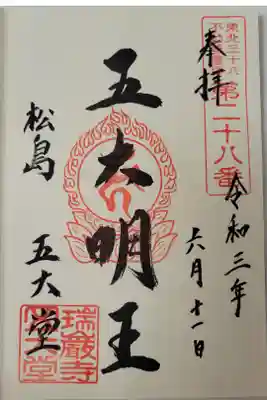 東北三十六
不動尊霊場
第二十八番
奉拝
令和三年
六月十一日
五大明王
松島
五大堂
瑞巌寺
五大堂